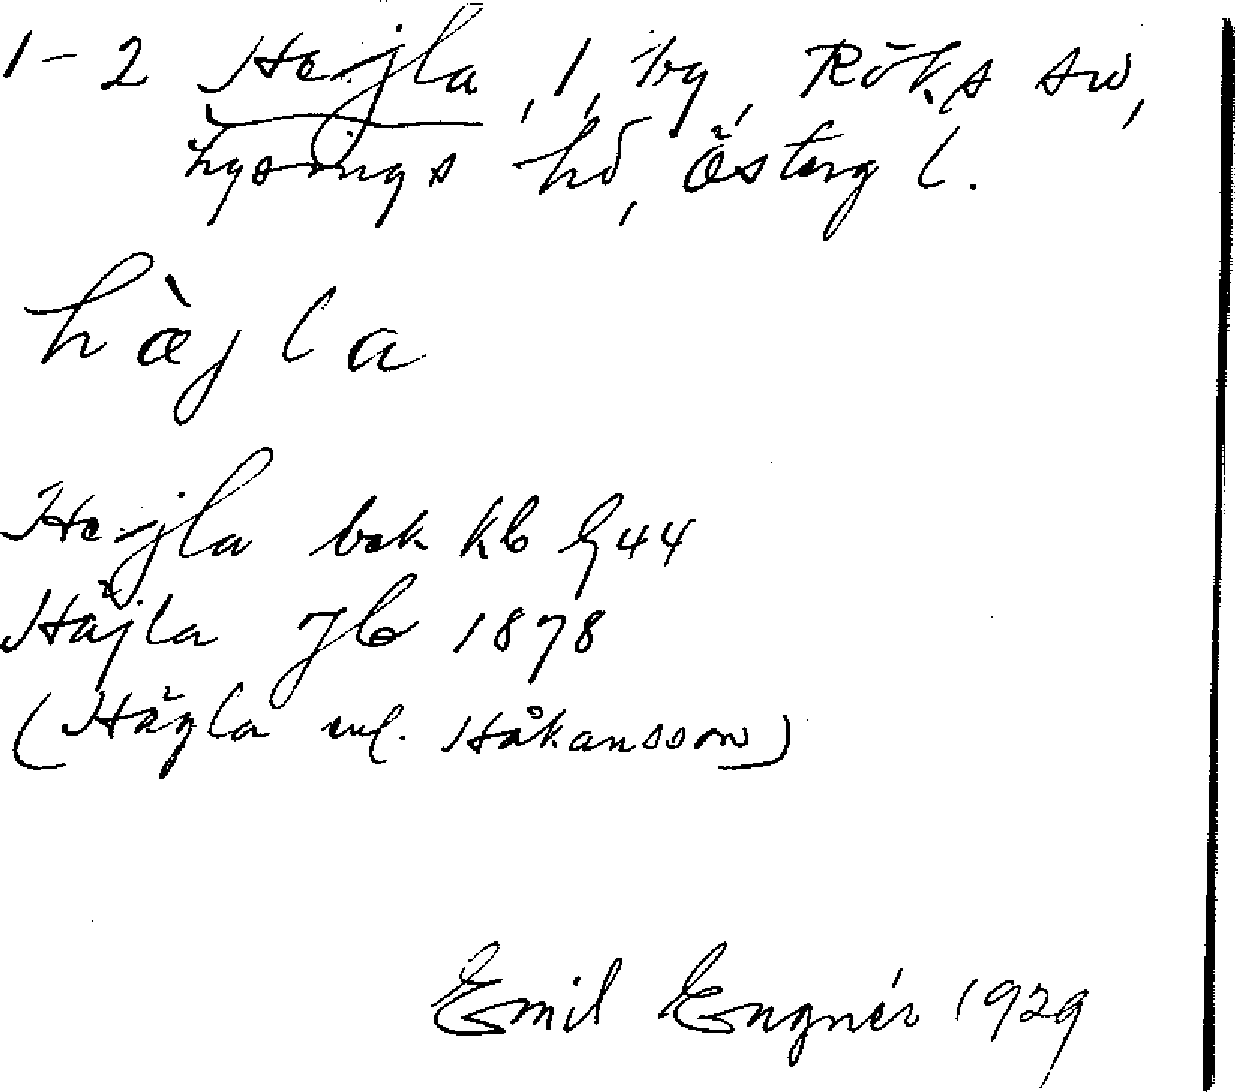 1-2 Hejla, 1, by, Röks sn,
Lysings hd, Österg l.
hæ̀jla
Hejla bok kb G 44
Häjla Jb 1878
(Hägla enl. Håkansson)
Emil Engnér 1929